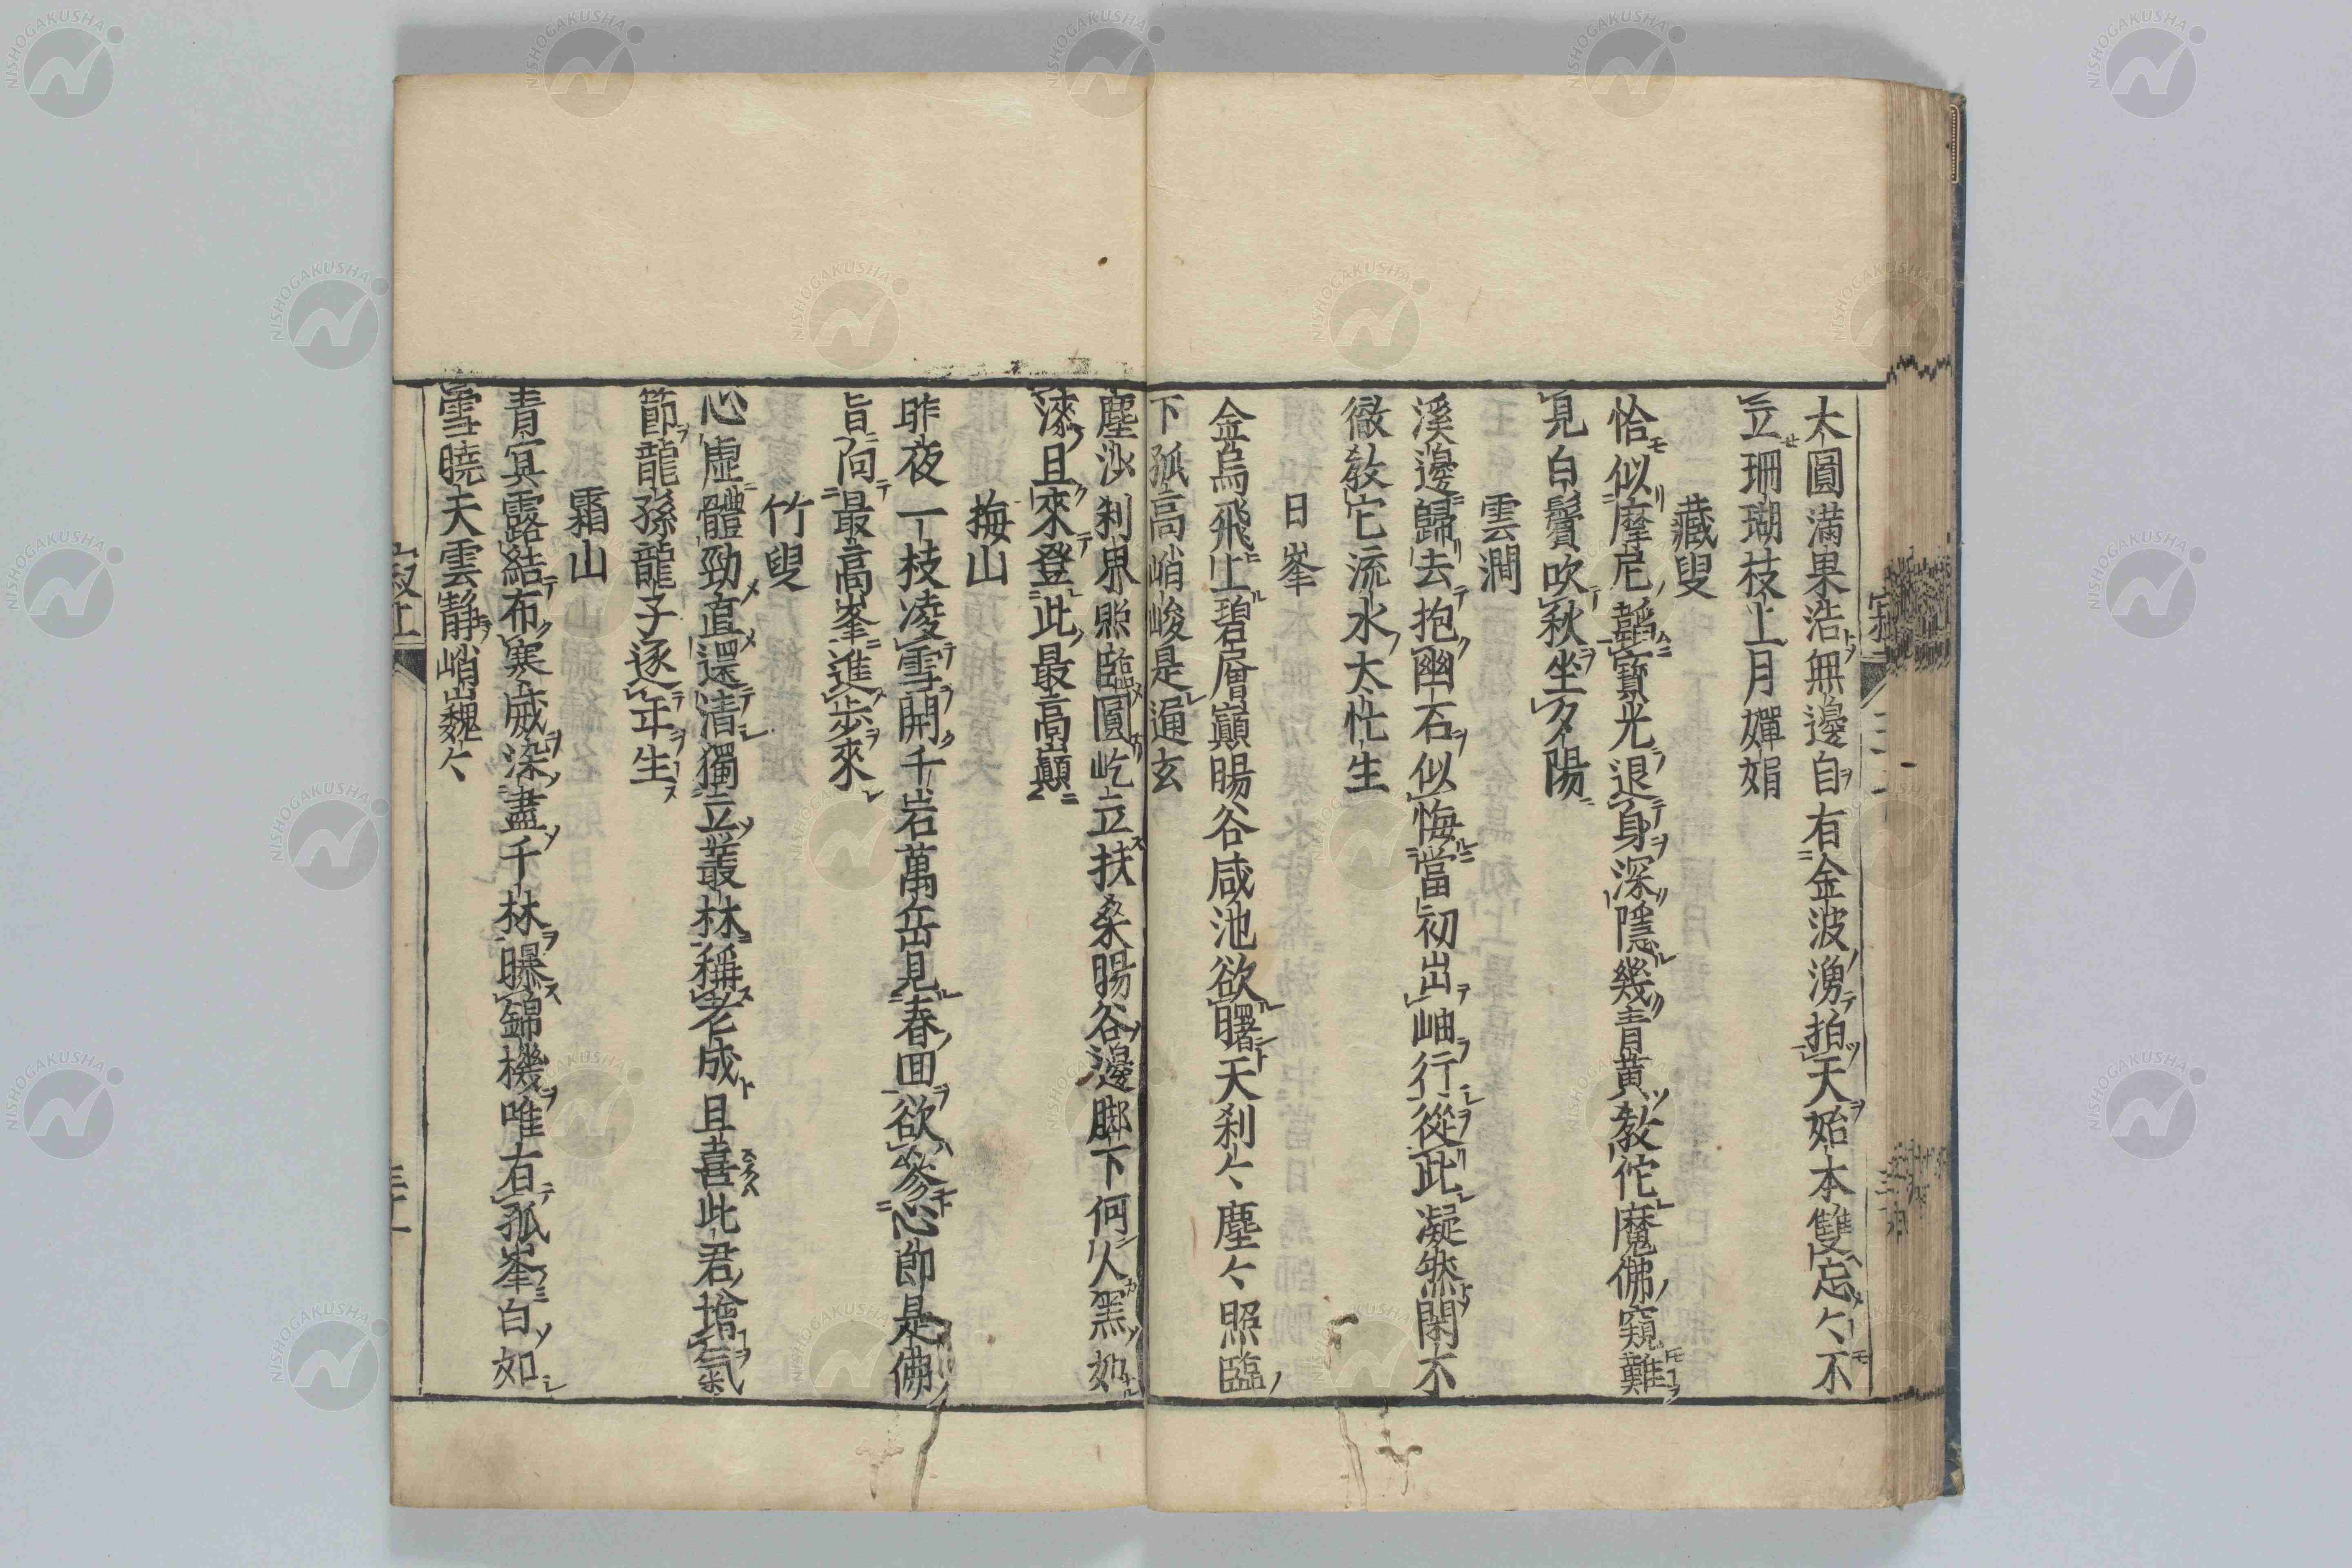 太圓滿果浩無邊自有金波湧拍天始本雙忘々不
立珊瑚枝上月嬋娟
藏叟
恰似摩尼韜寶光退身深隱幾青黄教佗魔佛窺難
見白鬢吹秋坐夕陽
雲澗
溪邊歸去抱幽石似悔當初出岫行從此凝然閑不
徹教它流水太忙生
日峯
金烏飛上碧層巔暘谷咸池欲曙天刹々塵々照臨
下孤高峭峻是通玄
塵沙刹界照臨圓屹立扶桑暘谷邊脚下何人黑如
漆且來登此最高巔
梅山
昨夜一枝凌雪開千岩萬岳見春回欲參心即是佛
旨向最高峯進步來
竹叟
心虛體勁直還清獨立叢林稱老成且喜此君增氣
節龍孫龍子逐年生
霜山
青冥露結布寒威染盡千林曝錦機唯有孤峯白如
雪曉天雲静峭巍々
NISHOGAKUSHA